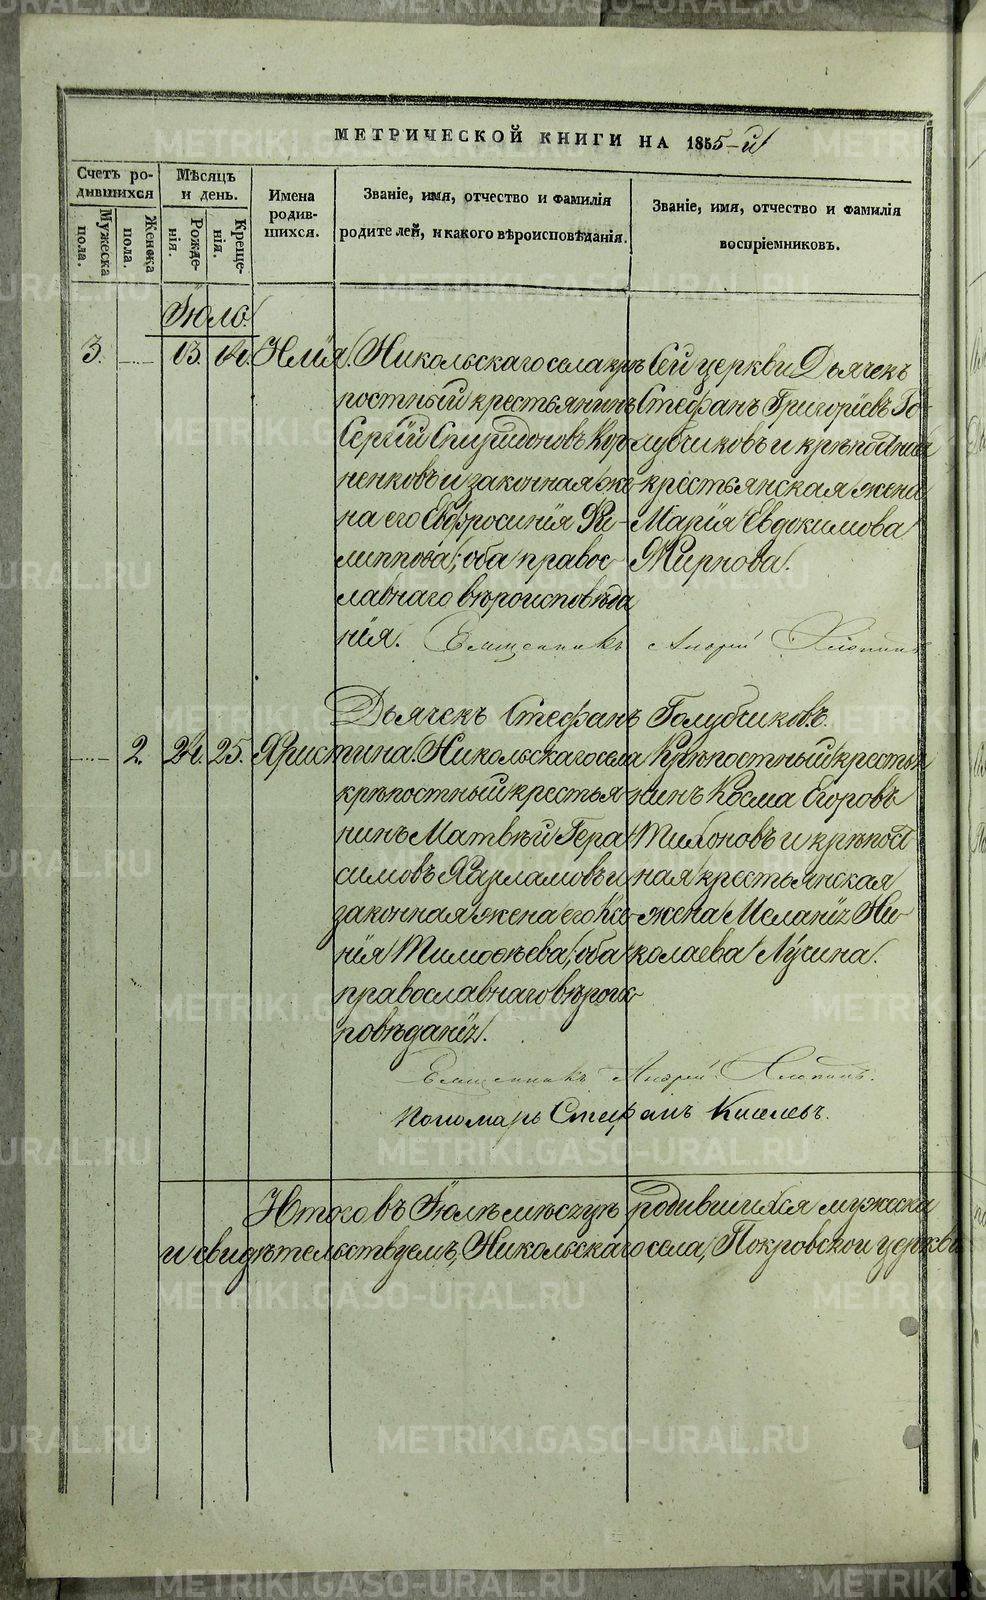 МЕТРИЧЕСКОЙ КНИГИ НА 1855-й
Счетъ ро-
дившихся
Мужеска
пола.
Женска
пола.
Мѣсяцъ
и день.
Рожде-
нія.
Креще-
нія.
Имена
родив-
шихся.
Званіе, имя, отчество и фамилія
родителей, и какого вѣроисповѣданія.
Званіе, имя, отчество и фамилія
воспріемниковъ.
Іюль.
3. 13. Илія.
Никольскаго села крѣ
постный крестьянинъ
Сергій Спиридоновъ
ненковъ и законная же
на его Евфросинія Фи-
липпова; оба правос-
лавнаго вѣроисповѣда
нія.
Сей церкви Дьячекъ
Стефанъ Григоріевъ Го-
лубчиковъ и крѣпостная
крестьянская жена
Марія Евдокимова
Жирнова.
Священникъ Андрей
Дьячекъ Стефанъ Голубчиковъ.
2. 24. 25. Христина.
Никольскаго села
крѣпостный крестья
нинъ Матвѣй Гера
симовъ Харламовъ и
законная жена его Ксе-
нія Тимоѳѣева; оба
православнаго вѣроис-
повѣданія.
Крѣпостный крестья
нинъ Косма Егоровъ
Тихоновъ и крѣпост
ная крестьянская
жена Меланія Ни-
колаева Лучина.
Священникъ Андрей
Пономарь Стефанъ Киселевъ.
Итого въ Іюлѣ мѣсяцѣ родившихся мужеска
и свидѣтельствуемъ, Никольскаго села, Покровской церкви
METRIKI.GASO-URAL.RU